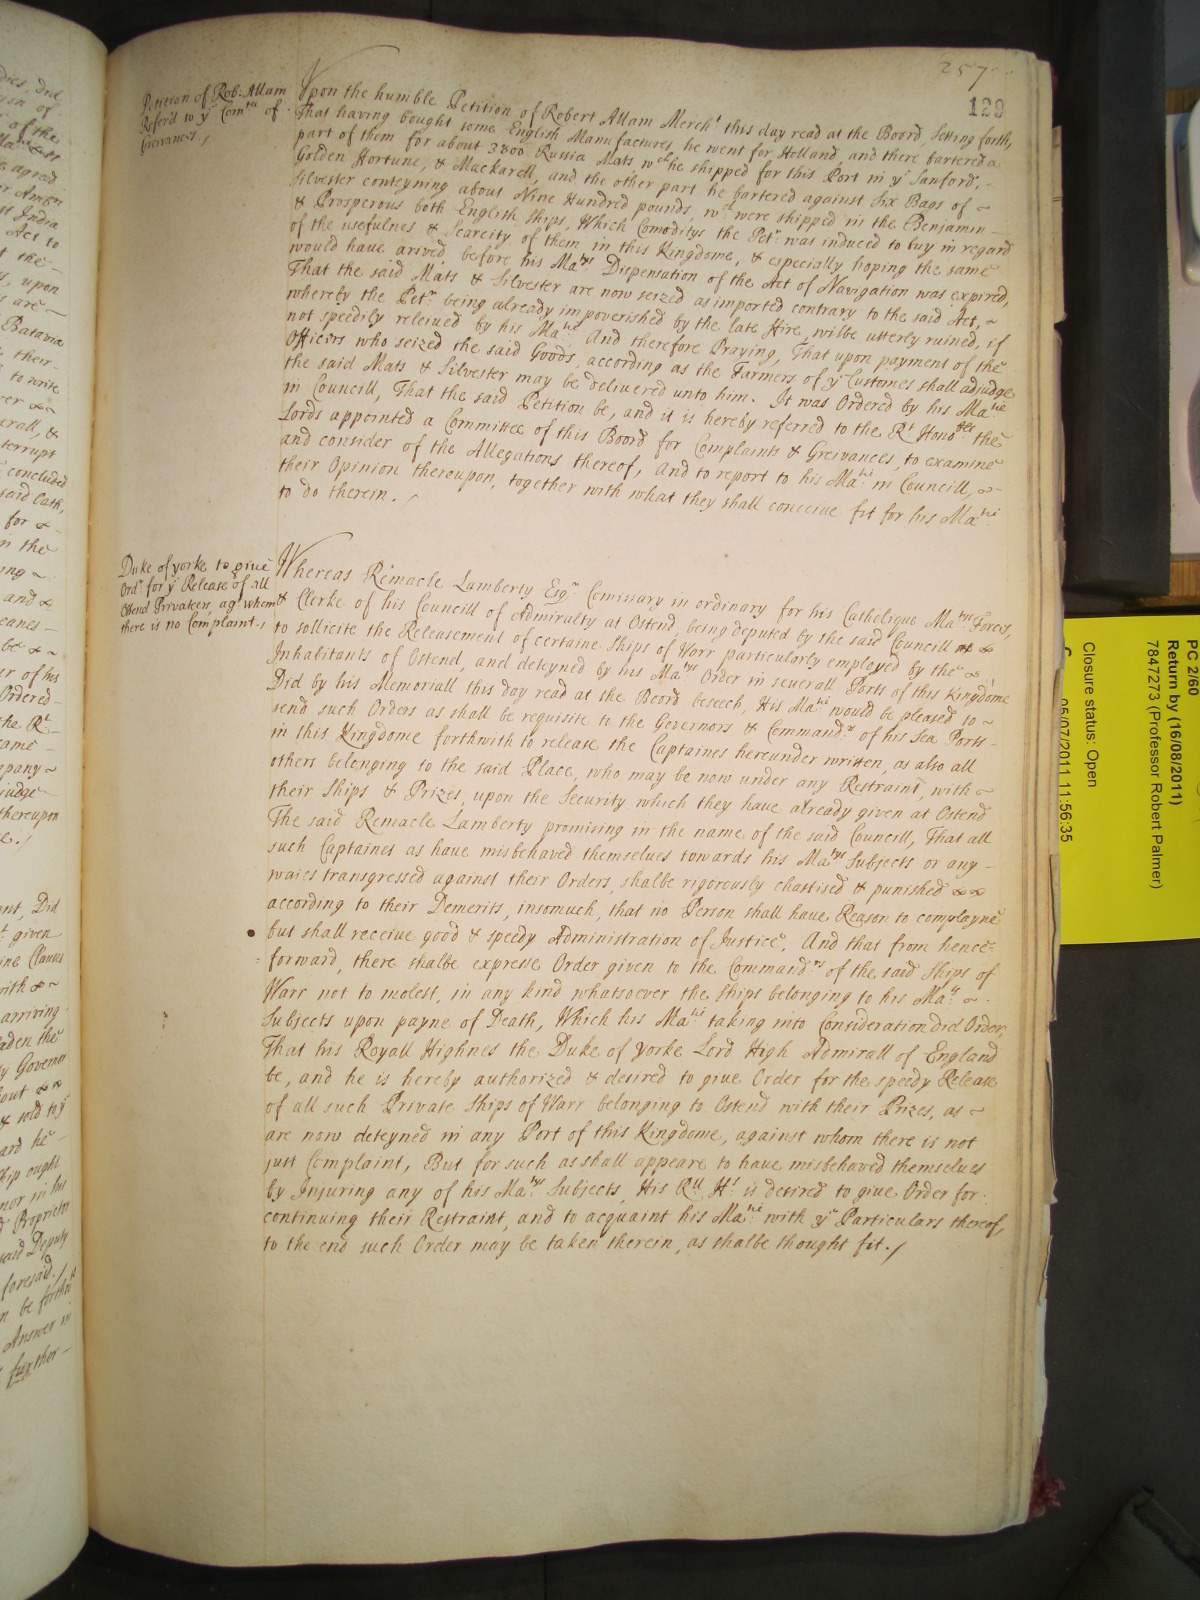 257
129
Petition of Rob. Allam
Referd to yͤ Comᵗᵉᵉ of
Greivances /
Upon the humble Petition of Robert Allam Merchᵗ this day read at the Boord, Setting forth,
That having bought some English Manufactures, he went for Holland, and there bartered a
part of them for about 3800 Russia Mats, wᶜʰ he shipped for this Port in yͤ Sanford, -
Golden Hortune, & Mackarell, and the other part he bartered against Six Bags of ~
Silvester conteyning about Nine Hundred pounds, wᶜʰ were shipped in the Benjamin -
& Prosperous both English Ships, Which Comoditys the Petʳ was induced to buy in regard
of the usefulnes & Scarcity of them in this Kingdome, & especially hoping the same
would have arived before his Maᵗʸˢ Dispensation of the Act of Navigation was expired,
That the said Mats & Silvester are now seized as imported contrary to the said Act, ~
whereby the Petʳ being already impoverished by the late Hire, wilbe utterly ruined, if
not speedily releived by his Maᵗⁱᵉ And therefore Praying, That upon payment of the
Officers who seized the said Goods, according as the Farmers of yͤ Customes shall adjudge
the said Mats & Silvester may be delivered unto him. It was Ordered by his Maᵗⁱᵉ
in Councill, That the said Petition be, and it is hereby referred to the Rᵗ Honoᵇˡᵉˢ the
Lords appointed a Committee of this Boord for Complaints & Greivances, to examine
and consider of the Allegations thereof, And to report to his Maᵗⁱᵉ in Councill, ~
their Opinion thereupon, together with what they shall conceive fit for his Maᵗⁱᵉ
to do therein. /
Duke of yorke to give
Ordʳ for yͤ Release of all
Ostend Privateers, agᵗ whom
there is no Complaint. /
Whereas Remacle Lamberty Esqʳ Comissary in ordinary for his Catholique Maᵗʸˢ Forces,
& Clerke of his Councill of Admiralty at Ostend, being deputed by the said Councill &
to sollicite the Releasement of certaine Ships of Warr particularly employed by the ~
Inhabitants of Ostend, and deteyned by his Maᵗʸˢ Order in severall Ports of this Kingdome
Did by his Memoriall this day read at the Boord beseech, His Maᵗⁱᵉ would be pleased to ~
send such Orders as shall be requisite to the Governors & Commandʳˢ of his Sea Ports -
in this Kingdome forthwith to release the Captaines hereunder written, as also all
others belonging to the said Place, who may be now under any Restraint, with ~
their Ships & Prizes, upon the Security which they have already given at Ostend
The said Remacle Lamberty promising in the name of the said Councill, That all
such Captaines as have misbehaved themselves towards his Maᵗʸˢ Subjects or any -
waies transgressed against their Orders, shalbe rigorously chastised & punished
according to their Demerits, insomuch, that no Person shall have Reason to complayne
but shall receive good & speedy Administration of Justice, And that from hence=
forward, there shalbe expresse Order given to the Commandʳˢ of the said Ships of
Warr not to molest, in any kind whatsoever the Ships belonging to his Maᵗˢ ~
Subjects upon payne of Death, Which his Maᵗⁱᵉ taking into Consideration did Order,
That his Royall Highnes the Duke of yorke Lord High Admirall of England
be, and he is hereby authorized & desired to give Order for the speedy Release
of all such Private Ships of Warr belonging to Ostend with their Prizes, as ~
are now deteyned in any Port of this Kingdome, against whom there is not
just Complaint, But for such as shall appeare to have misbehaved themselves
by Injuring any of his Maᵗʸˢ Subjects, His Rˡˡ Hˢ is desired to give Order for
continuing their Restraint, and to acquaint his Maᵗⁱᵉ with yͤ Particulars thereof,
to the end such Order may be taken therein, as shalbe thought fit. /
PC 2/60
Return by (16/08/2011)
7847273 (Professor Robert Palmer)
Closure status: Open
05/07/2011 11:56:35